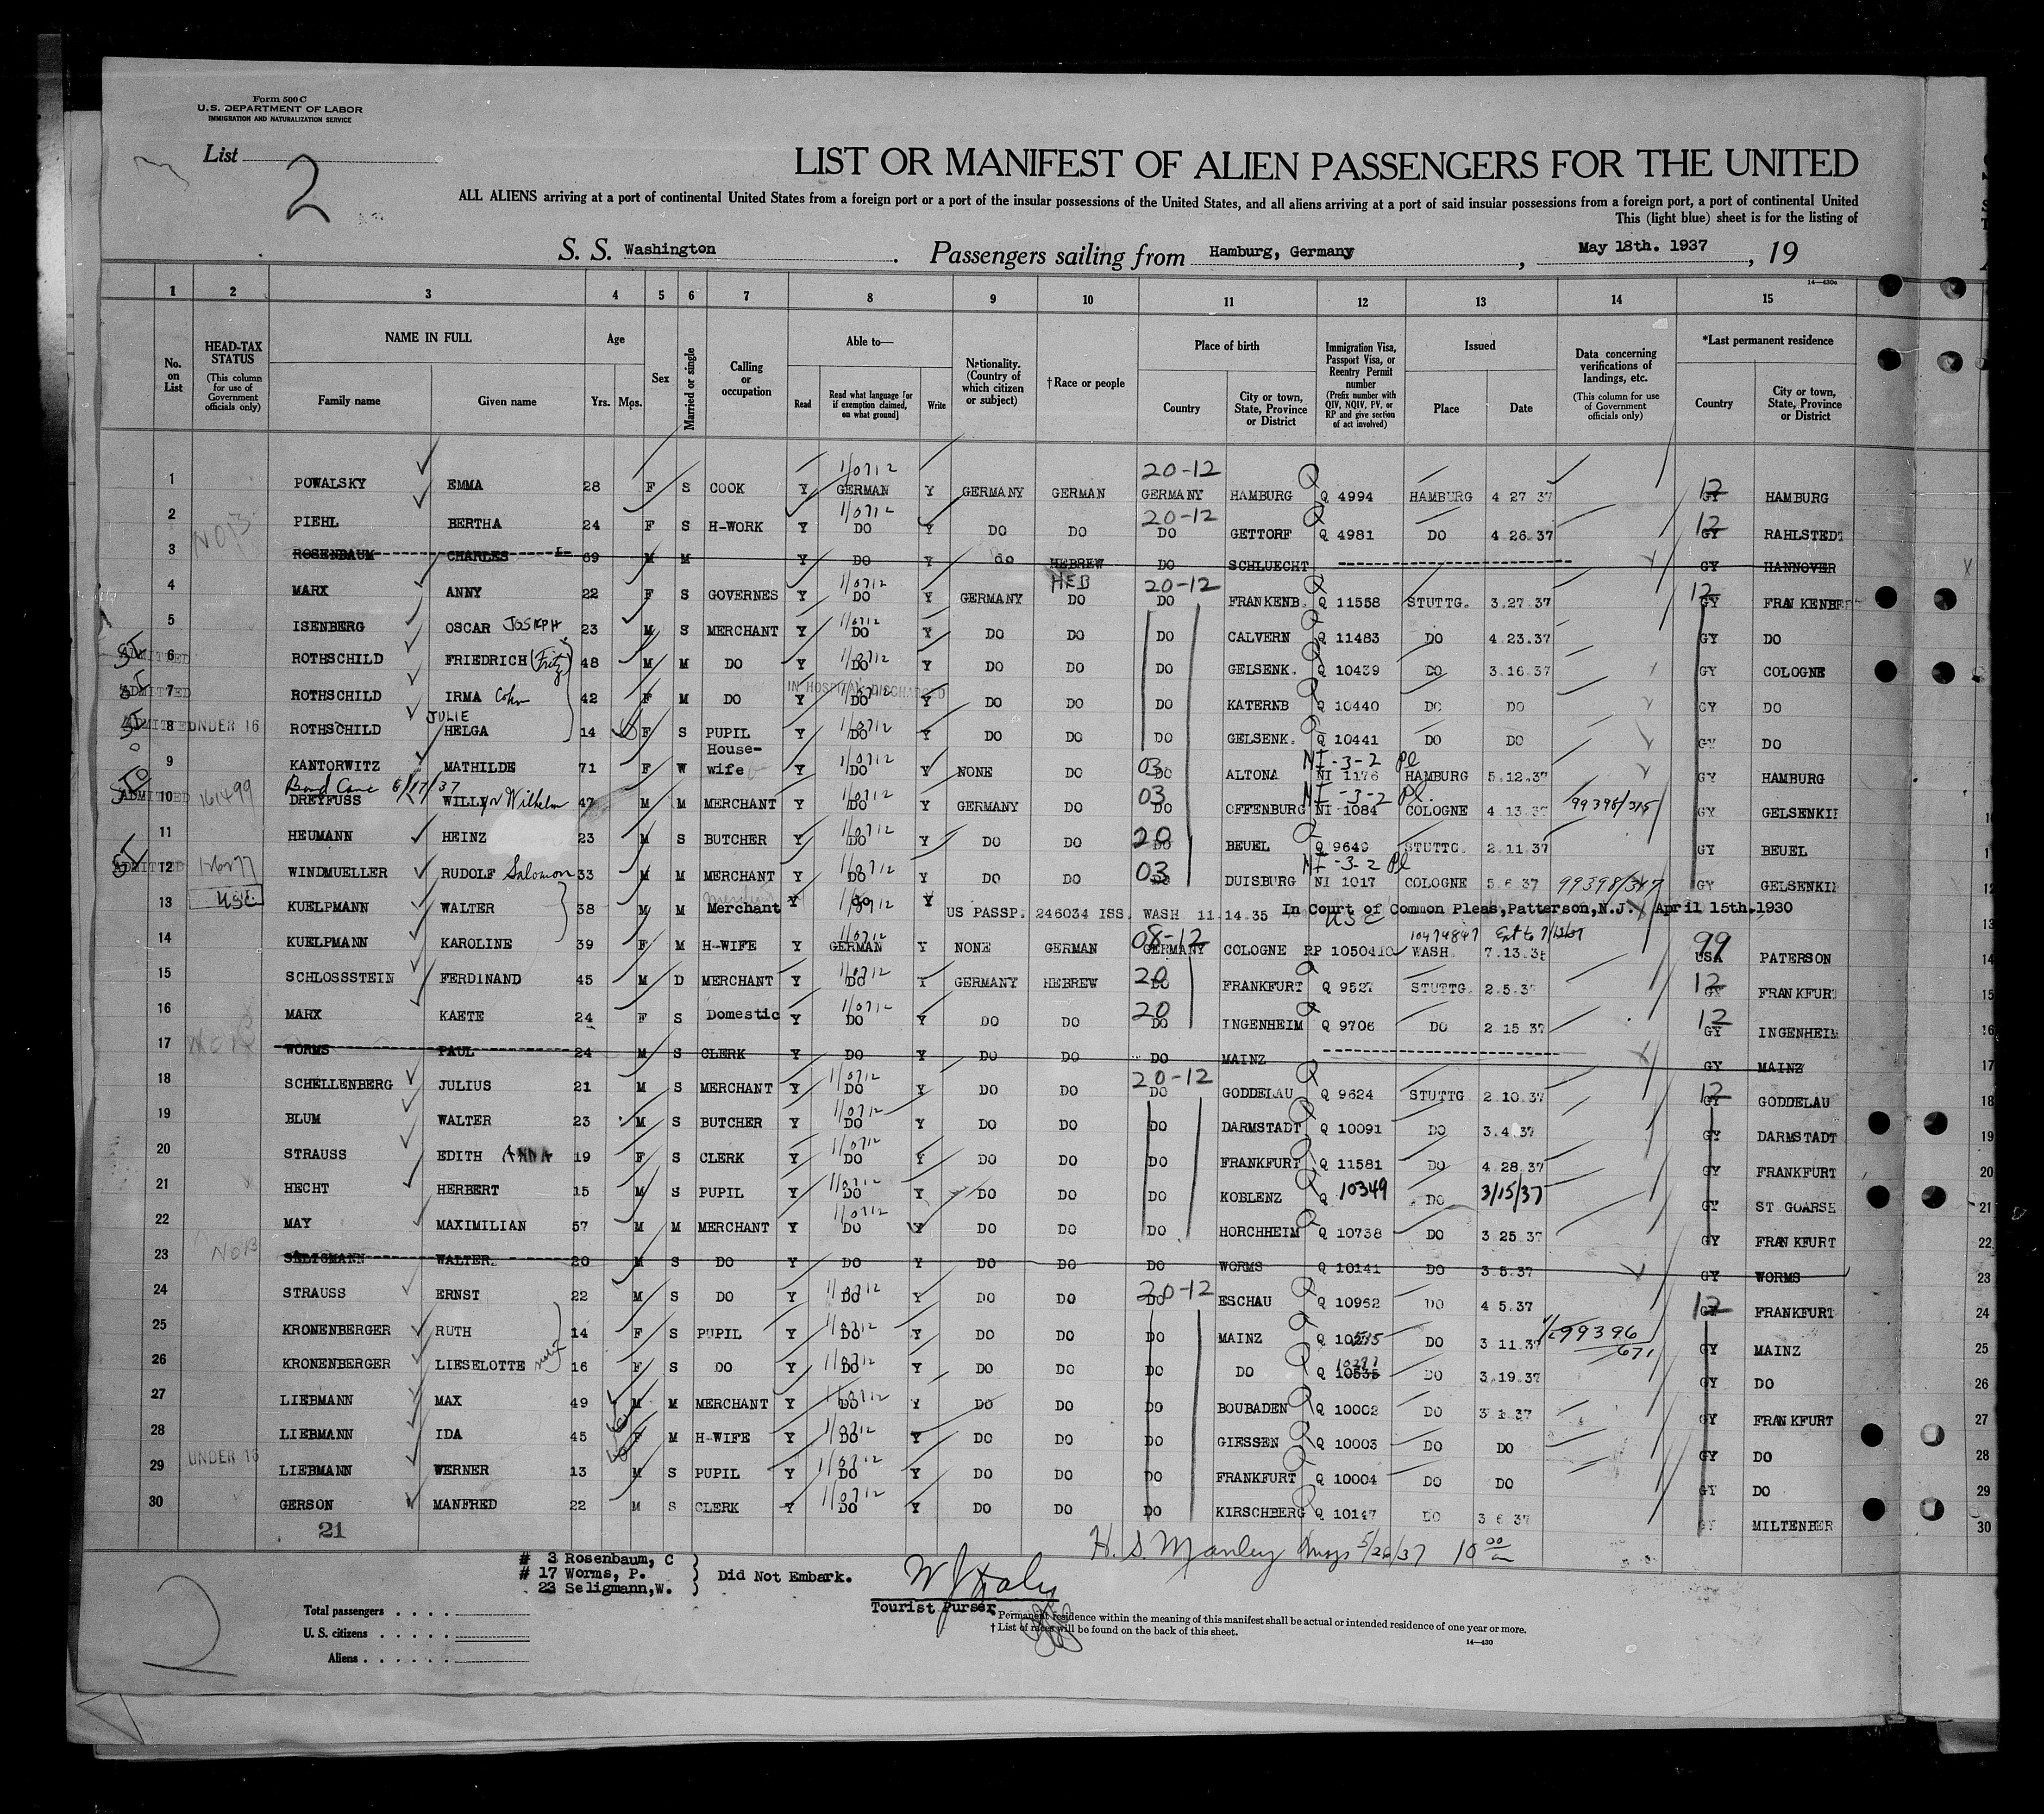 Form 500 C
U. S. DEPARTMENT OF LABOR
IMMIGRATION AND NATURALIZATION SERVICE
List 2
LIST OR MANIFEST OF ALIEN PASSENGERS FOR THE UNITED
ALL ALIENS arriving at a port of continental United States from a foreign port or a port of the insular possessions of the United States, and all aliens arriving at a port of said insular possessions from a foreign port, a port of continental United
This (light blue) sheet is for the listing of
S. S. Washington . Passengers sailing from Hamburg, Germany , May 18th. 1937 , 19
14—430a
1 2 3 4 5 6 7 8 9 10 11 12 13 14 15
No. on List HEAD-TAX STATUS (This column for use of Government officials only) NAME IN FULL Family name Given name Age Yrs. Mos. Sex Married or single Calling or occupation Able to— Read Read what language [or if exemption claimed, on what ground] Write Nationality. (Country of which citizen or subject) † Race or people Place of birth Country City or town, State, Province or District Immigration Visa, Passport Visa, or Reentry Permit number (Prefix number with QIV, NQIV, PV, or RP and give section of act involved) Issued Place Date Data concerning verifications of landings, etc. (This column for use of Government officials only) *Last permanent residence Country City or town, State, Province or District
1 POWALSKY EMMA 28 F S COOK Y GERMAN 1/0712 Y GERMANY GERMAN GERMANY 20-12 HAMBURG Q 4994 HAMBURG 4 27 37 GY 12 HAMBURG
2 PIEHL BERTHA 24 F S H-WORK Y DO 1/0712 Y DO DO DO 20-12 GETTORF Q 4981 DO 4 26.37 GY 12 RAHLSTEDT
3 ROSENBAUM CHARLES 69 M M Y DO Y do HEBREW DO SCHLUECHT GY HANNOVER
4 MARX ANNY 22 F S GOVERNES Y DO 1/0712 Y GERMANY HEB DO DO 20-12 FRANKENB. Q 11558 STUTTG. 3.27.37 GY 12 FRANKENBER
5 ISENBERG OSCAR JOSEPH 23 M S MERCHANT Y DO 1/0712 Y DO DO DO CALVERN Q 11483 DO 4.23.37 GY DO
ADMITTED SI 6 ROTHSCHILD FRIEDRICH (Fritz) 48 M M DO Y DO 1/0712 Y DO DO DO GELSENK. Q 10439 DO 3.16.37 GY COLOGNE
ADMITTED SI 7 ROTHSCHILD IRMA Cohn 42 F M DO IN HOSPITAL DISCHARGED Y DO Y DO DO DO KATERNB Q 10440 DO DO GY DO
ADMITTED SI 8 UNDER 16 ROTHSCHILD JULIE HELGA 14 F S PUPIL Y DO 1/0712 Y DO DO DO GELSENK. Q 10441 DO DO GY DO
9 KANTORWITZ MATHILDE 71 F W House-wife Y DO 1/0712 Y NONE DO DO 03 ALTONA NI-3-2 Pl NI 1176 HAMBURG 5.12.37 GY HAMBURG
ADMITTED SI 10 161499 Bond Canc 6/17/37 DREYFUSS WILLY Wilhelm 47 M M MERCHANT Y DO 1/0712 Y GERMANY DO DO 03 OFFENBURG NI-3-2 Pl. NI 1084 COLOGNE 4.13.37 99398/315 GY GELSENKI
11 HEUMANN HEINZ 23 M S BUTCHER Y DO 1/0712 Y DO DO DO 20 BEUEL Q 9649 STUTTG. 2.11.37 GY BEUEL
ADMITTED SI 12 WINDMUELLER RUDOLF Salomon 33 M M MERCHANT Y DO 1/0712 Y DO DO DO 03 DUISBURG NI-3-2 Pl NI 1017 COLOGNE 5.6.37 99398/347 GY GELSENKI
13 USC KUELPMANN WALTER 38 M M Merchant Y do 1/0712 Y US PASSP. 246034 ISS. WASH 11.14.35 USC In Court of Common Pleas,Patterson,N.J. April 15th.1930
14 KUELPMANN KAROLINE 39 F M H-WIFE Y GERMAN 1/0712 Y NONE GERMAN GERMANY 08-12 COLOGNE RP 1050410 WASH. 7.13.36 USA 99 PATERSON
15 SCHLOSSSTEIN FERDINAND 45 M D MERCHANT Y DO 1/0712 Y GERMANY HEBREW DO 20 FRANKFURT Q 9527 STUTTG. 2.5.37 GY 12 FRANKFURT
16 MARX KAETE 24 F S Domestic Y DO 1/0712 Y DO DO DO 20 INGENHEIM Q 9706 DO 2 15.37 GY 12 INGENHEIM
17 WORMS PAUL 24 M S CLERK Y DO Y DO DO DO MAINZ GY MAINZ
18 SCHELLENBERG JULIUS 21 M S MERCHANT Y DO 1/0712 Y DO DO DO 20-12 GODDELAU Q 9624 STUTTG 2.10.37 GY 12 GODDELAU
19 BLUM WALTER 23 M S BUTCHER Y DO 1/0712 Y DO DO DO DARMSTADT Q 10091 DO 3.4.37 GY DARMSTADT
20 STRAUSS EDITH ANNA 19 F S CLERK Y DO 1/0712 Y DO DO DO FRANKFURT Q 11581 DO 4.28.37 GY FRANKFURT
21 HECHT HERBERT 15 M S PUPIL Y DO 1/0712 Y DO DO DO KOBLENZ Q 10349 DO 3/15/37 GY ST GOARSH
22 MAY MAXIMILIAN 57 M M MERCHANT Y DO 1/0712 Y DO DO DO HORCHHEIM Q 10738 DO 3 25.37 GY FRANKFURT
23 NOB SELIGMANN WALTER. 20 M S DO Y DO Y DO DO DO WORMS Q 10141 DO 3.5.37 GY WORMS
24 STRAUSS ERNST 22 M S DO Y DO 1/0712 Y DO DO DO 20-12 ESCHAU Q 10962 DO 4 5.37 GY 12 FRANKFURT
25 KRONENBERGER RUTH 14 F S PUPIL Y DO 1/0712 Y DO DO DO MAINZ Q DO 3 11.37 99396/671 GY MAINZ
26 KRONENBERGER LIESELOTTE 16 F S DO Y DO 1/0712 Y DO DO DO DO Q 10535 DO 3.19.37 GY DO
27 LIEBMANN MAX 49 M M MERCHANT Y DO 1/0712 Y DO DO DO BOUBADEN Q 10002 DO 3 1.37 GY FRANKFURT
28 LIEBMANN IDA 45 F M H-WIFE Y DO 1/0712 Y DO DO DO GIESSEN Q 10003 DO DO GY DO
29 UNDER 16 LIEBMANN WERNER 13 M S PUPIL Y DO 1/0712 Y DO DO DO FRANKFURT Q 10004 DO DO GY DO
30 GERSON MANFRED 22 M S CLERK Y DO 1/0712 Y DO DO DO KIRSCHBERG Q 10147 DO 3 6 37 GY MILTENBER
21
H. S. Manley Insp 5/26/37 10 00 am
# 3 Rosenbaum, C
# 17 Worms, P. Did Not Embark.
23 Seligmann,W.
Tourist Purser
Total passengers . . . .
U. S. citizens . . . . .
Aliens . . . . . .
* Permanent residence within the meaning of this manifest shall be actual or intended residence of one year or more.
† List of races will be found on the back of this sheet.
14—430
2